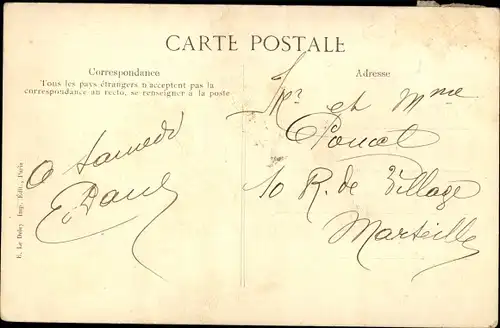 CARTE POSTALE
Correspondance
Tous les pays étrangers n'acceptent pas la
correspondance au recto, se renseigner à la poste
Adresse
E. Le Deley Imp. Édit., Paris
a samedi
Mr et Mme
10 R. de Village
Marseille